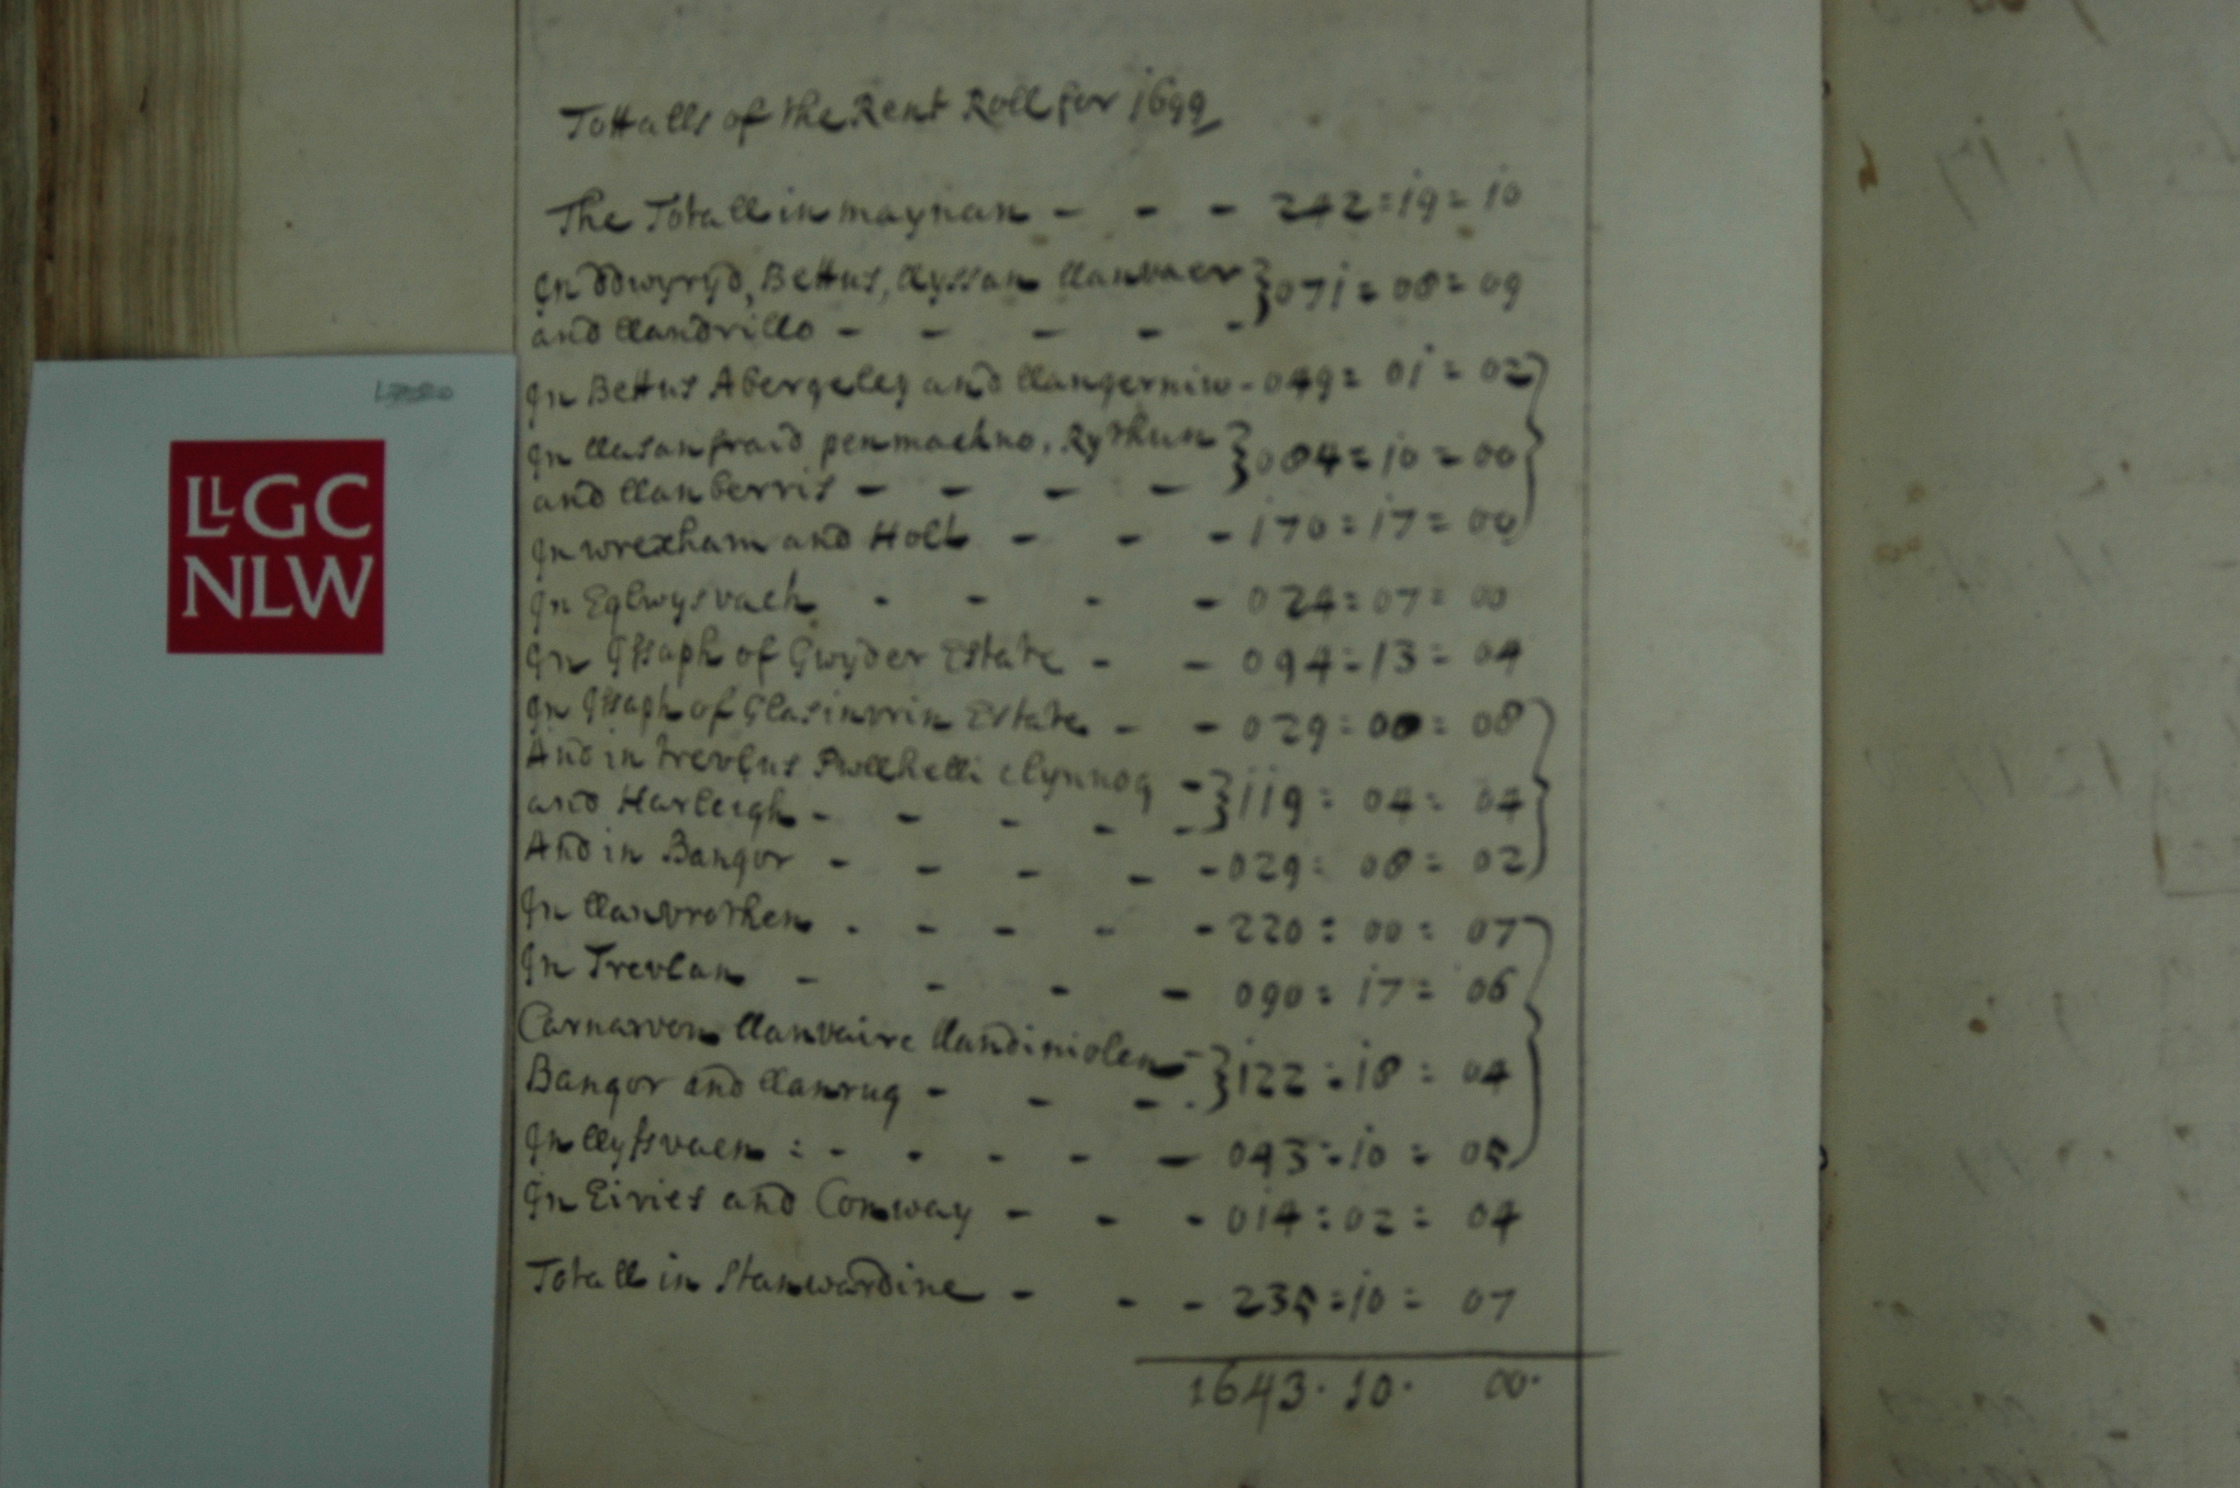 Tottalls of the Rent Roll for 1699
The Totall in maynan - - - 242=19=10
In ddwyryd, Bettus, llyssan llanvaer } 071=08=09
and llandrillo - - - - -
In Bettus Abergeley and llangerniw - 049=01=02
In llasanfraid penmachno, Rythun } 084=10=00
and llanberris - - - -
In wrexham and Holt - - - 170=17=00
In Eglwysvach - - - - 024=07=00
In Issaph of Gwyder Estate - - 094=13=04
In Issaph of Glasinvrin Estate - - 029=00=08
And in trevlus Pwllhelli clynnog - } 119=04=04
and Harleigh - - - - -
And in Bangor - - - - - 029=08=02
In llanvrothen - - - - - 220=00=07
In Trevlan - - - - 090=17=06
Carnarvon llanvaire llandiniolen - } 122=18=04
Bangor and llanrug - - - -
In llyssvaen : - - - - - 043=10=05
In Eiries and Conway - - - 014=02=04
Totall in Stanwardine - - - 235=10=07
1643. 10. 00.
LLGC
NLW